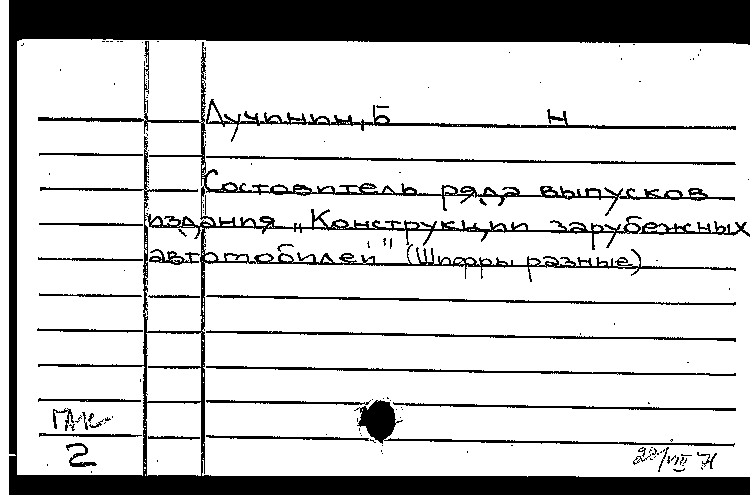 Лучинин, Б Н
Составитель ряда выпусков
издания „Конструкции зарубежных
автомобилей" (Шифры разные)
ГАК
2
22/VIII 71